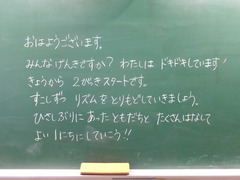 おはようございます。
みんなげんきですか？わたしは ドキドキしています！
きょうから 2がっきスタートです。
すこしずつ リズムをとりもどしていきましょう。
ひさしぶりに あった ともだちと たくさんはなして
よい 1にちにしていこう!!